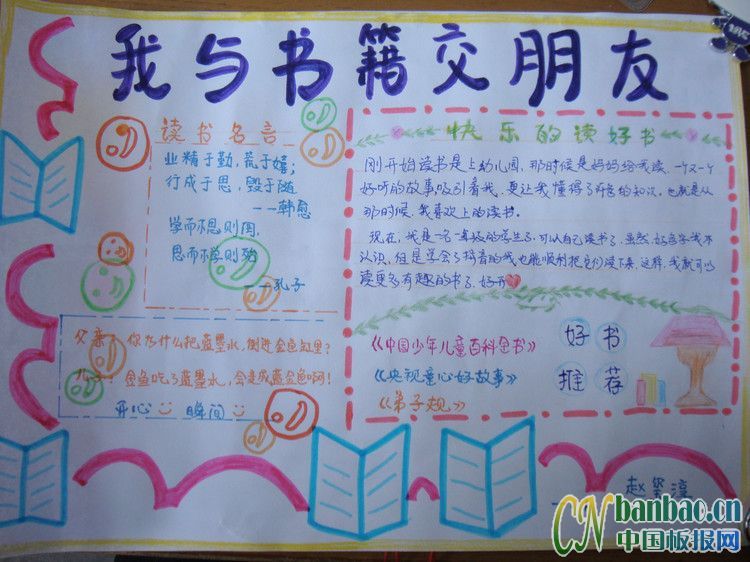 我与书籍交朋友
读书名言
业精于勤,荒于嬉;
行成于思,毁于随
——韩愈
学而不思则罔,
思而不学则殆
——孔子
父亲:你为什么把蓝墨水,倒进金鱼缸里?
儿子:金鱼吃了蓝墨水,会变成蓝金鱼啊!
开心 瞬间
快乐的读好书
刚开始读书是上幼儿园,那时候是妈妈给我读,一个又一个
好听的故事,吸引着我,更让我懂得了许多的知识。也就是从
那时候,我喜欢上的读书。
现在,我是一名一年级的学生了,可以自己读书了,虽然,好多字我不
认识,但是学会了拼音的我也能顺利把它们读下来,这样,我就可以
读更多有趣的书了,好开
《中国少年儿童百科全书》
《央视童心好故事》
《弟子规》
好书
推荐
CNbanbao.cn
中国板报网